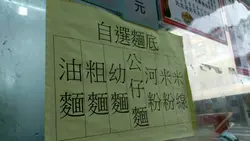 元
自選麵底
油麵
粗麵
幼麵
公仔麵
河粉
米粉
米線